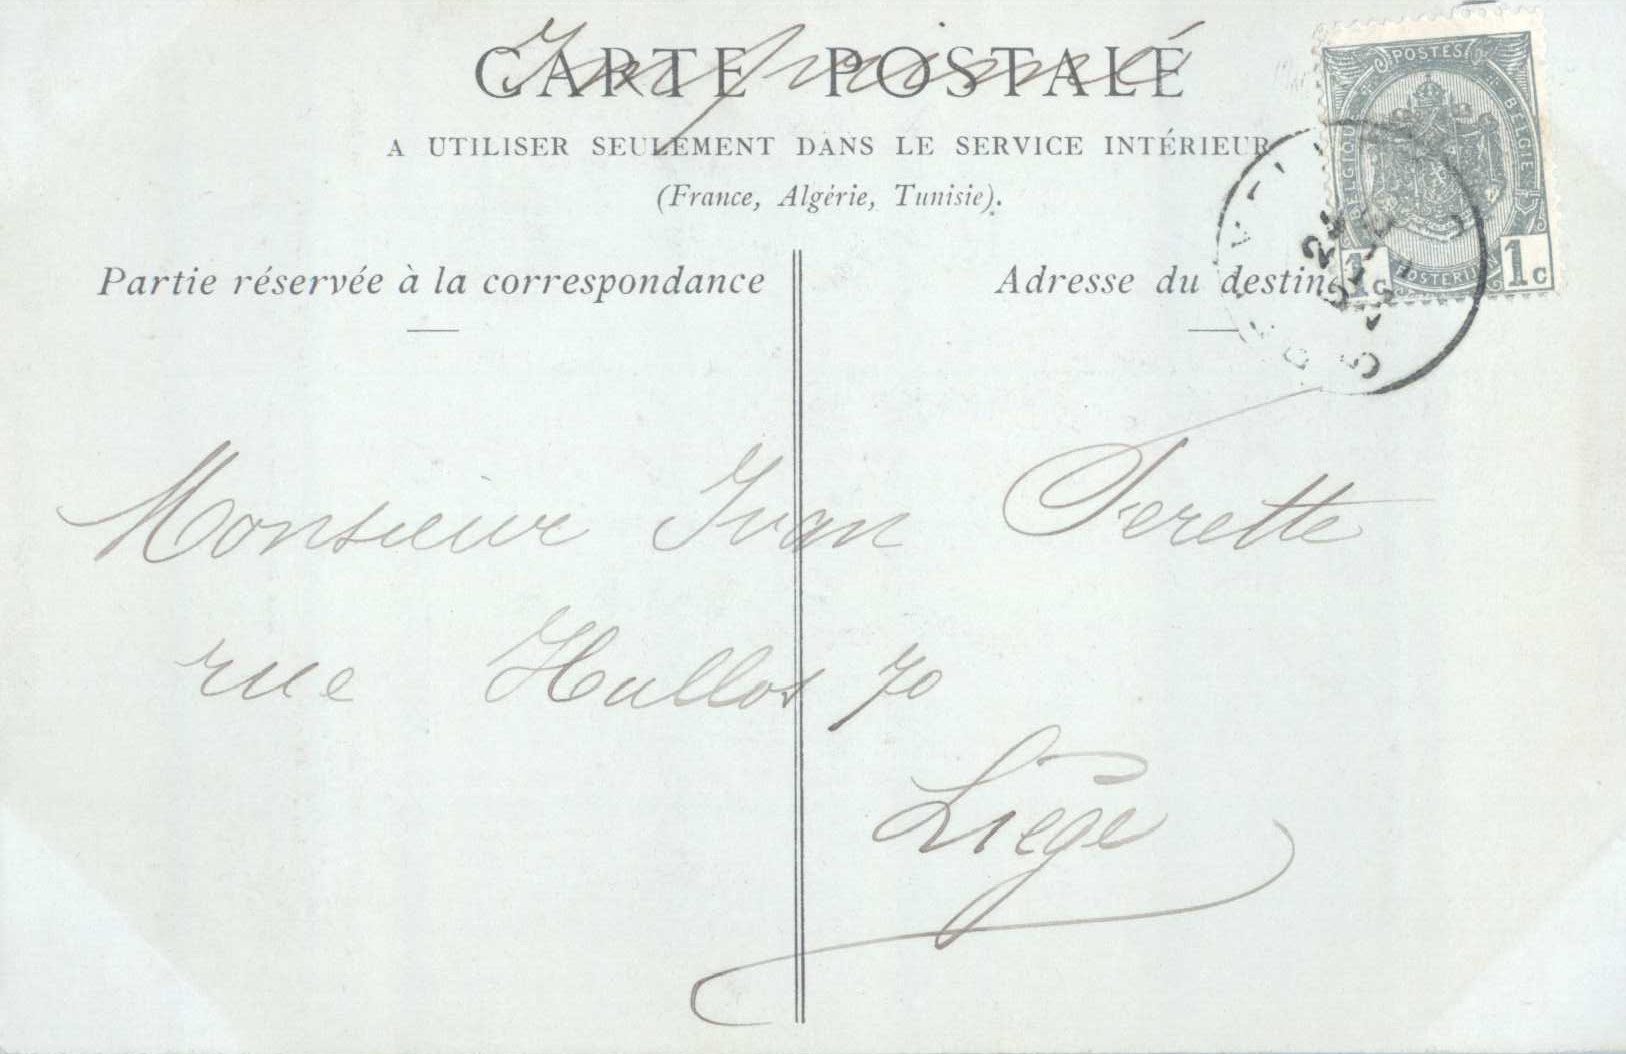 Imprimé
CARTE POSTALE
A UTILISER SEULEMENT DANS LE SERVICE INTÉRIEUR
(France, Algérie, Tunisie).
Partie réservée à la correspondance
Adresse du destin
POSTES
BELGIQUE
BELGIË
POSTERIJEN
1c
1c
Monsieur Ivan Serette
rue Hullos 70
Liège